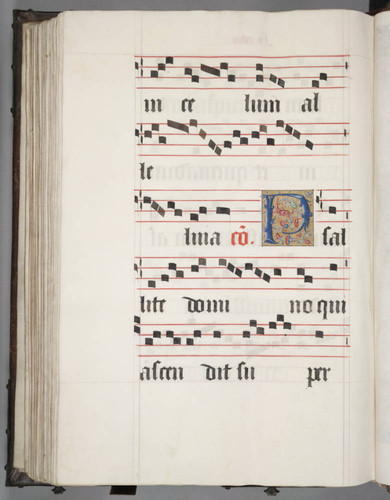 in ce lum al
le
luia cō. P sal
lite domi no qui
ascen dit su per